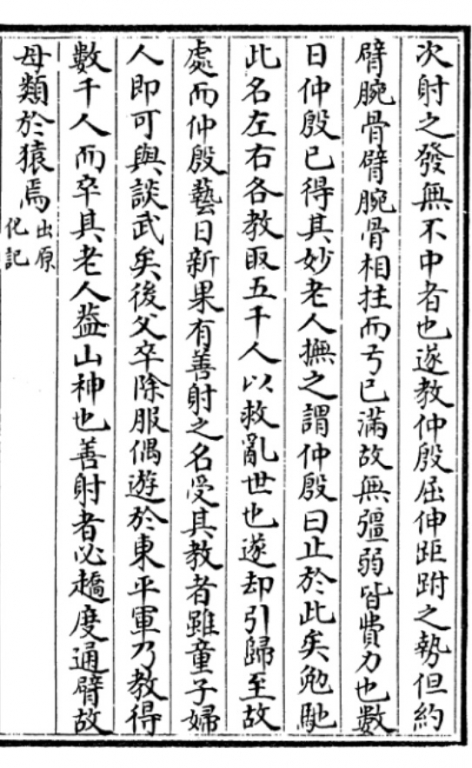 次射之發無不中者也遂教仲殷屈伸距跗之勢但約
臂腕骨臂腕骨相拄而弓已滿故無彊弱皆費力也數
日仲殷已得其妙老人撫之謂仲殷曰止於此矣勉馳
此名左右各教取五千人以救亂世也遂却引歸至故
處而仲殷藝日新果有善射之名受其教者雖童子婦
人即可與談武矣後父卒除服偶遊於東平軍乃教得
數千人而卒其老人蓋山神也善射者必趫度通臂故
母類於猿焉出原化記